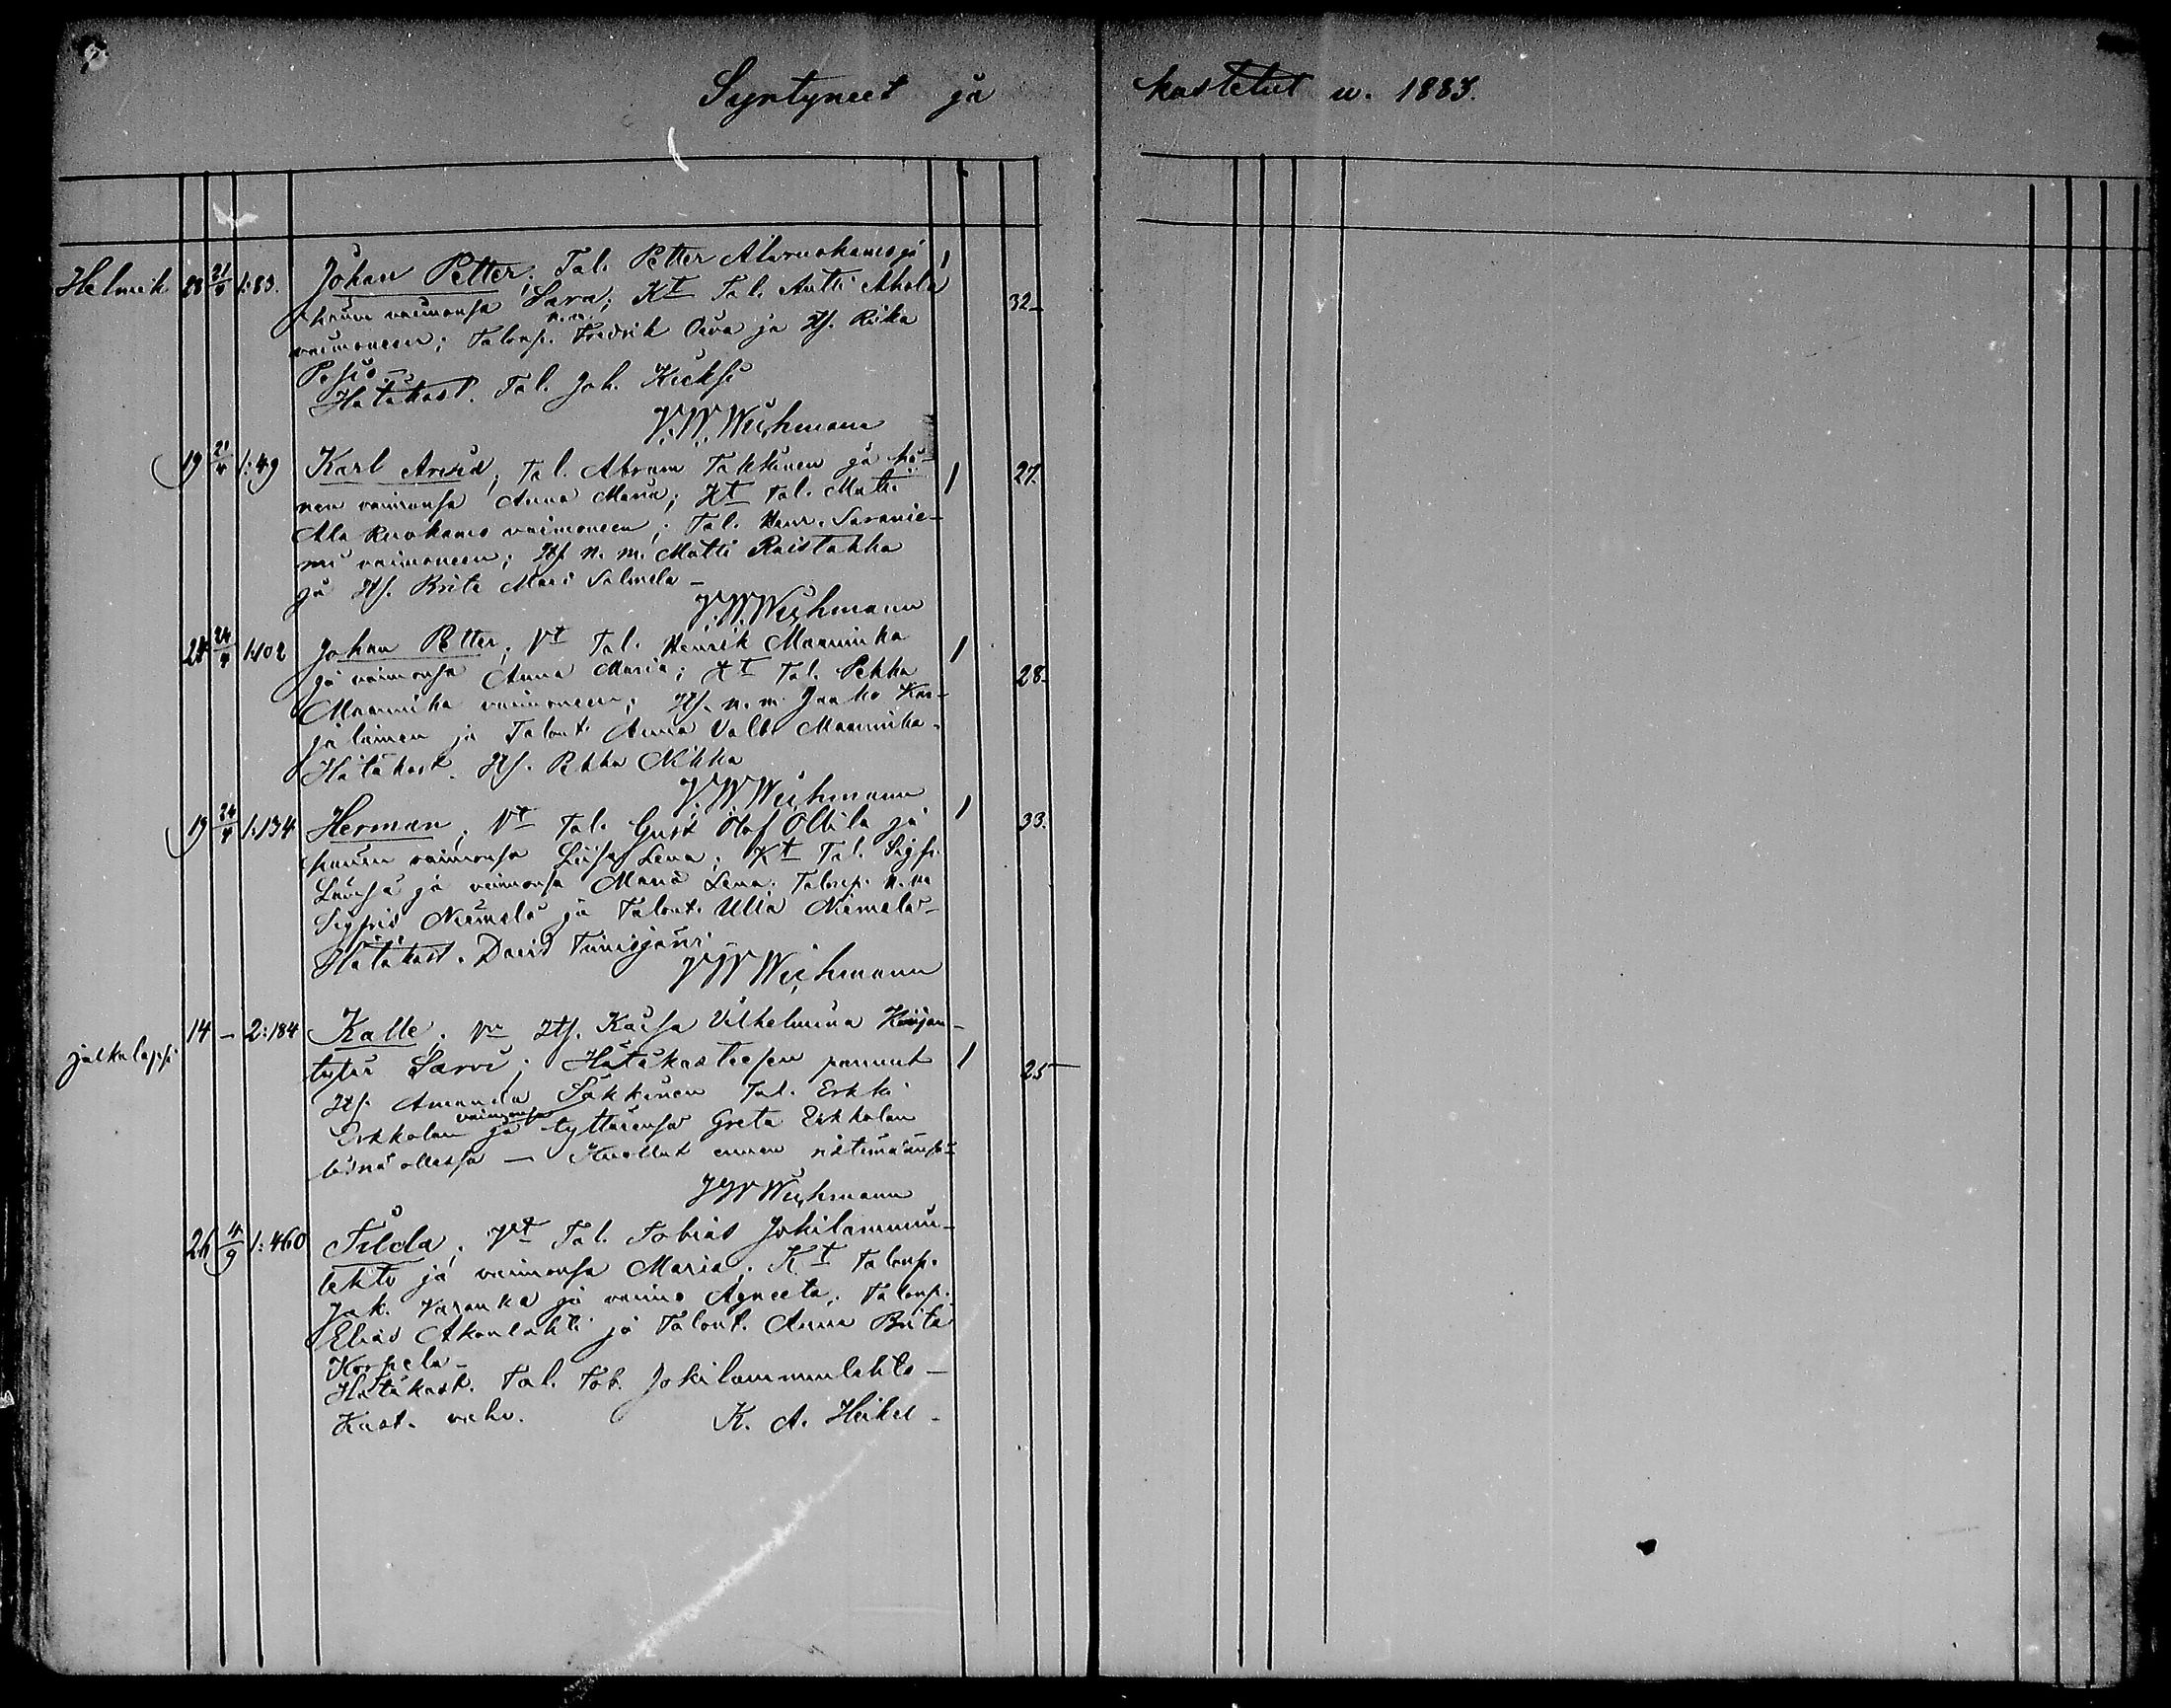 Syntyneet ja kastetut w. 1883.
Helmik 28 21/4 1:83. Johan Petter; Tal. Petter Alaruokanen ja 1
hänen vaimonsa Sara; Kt Tal. Antti Ahola 32
vaimoneen; Talonp. n.m. Fredrik Oiva ja Its. Riika
Posio –
Hätäkast. Tal. Joh. Kieksi
V. W. Wichmann
19 21/4 1:49 Karl Arvid; Tal. Abram Takkinen ja hä- 27.
nen vaimonsa Anna Maria; Kt Tal. Matti 1
Ala Ruokanen vaimoneen; Tal. Henr. Saranie-
mi vaimoneen; Its. n. m. Matti Raistakka
ja Its. Brita Mari Salmela –
V. W. Wichmann
24 24/4 1:102 Johan Petter; Vt Tal. Henrik Maaninka 1
ja vaimonsa Anna Maria; Kt Tal. Pekka 28
Maaninka vaimoneen; Its. n. m. Jaako Kar-
jalainen ja Talont. Anna Valb. Maaninka.
Hätäkast. Its. Pekka Nikka
V. W. Wichmann
19 24/4 1:134 Herman; Vt Tal. Gust Olof Ollila ja 1 33.
hänen vaimonsa Liisa Lena; Kt Tal. Sigfr.
ja vaimonsa Maria Lena; Talonp. n. m.
Sigfrid Niemelä ja Talont. Ulla Niemelä –
Hätäkast. David
V W Wichmann
14 – 2:184 Kalle; Vn Its. Kaisa Vilhelmina Heikjan-
jalkalapsi tytär Sarvi; Hätäkasteesen pannut 1 25
Its. Amanda Säkkinen Tal. Erkki
Erkkolan vaimonsa ja tyttärensä Greta Erkkolan
läsnä ollessa – Kuollut ennen ristimäänsä –
V W Wichmann
26 4/9 1:460 Tilda; Vt Tal. Tobias Jokilammin-
lehto ja vaimonsa Maria; Kt Talonp.
Jak. Karanka ja vaimo Agneeta; Talonp.
Elias Akanlahti ja Talont. Anna Brita
Korpela –
Hätäkast. Tal. Tob. Jokilamminlehto –
Kast. vahv. K. A. Heikel –